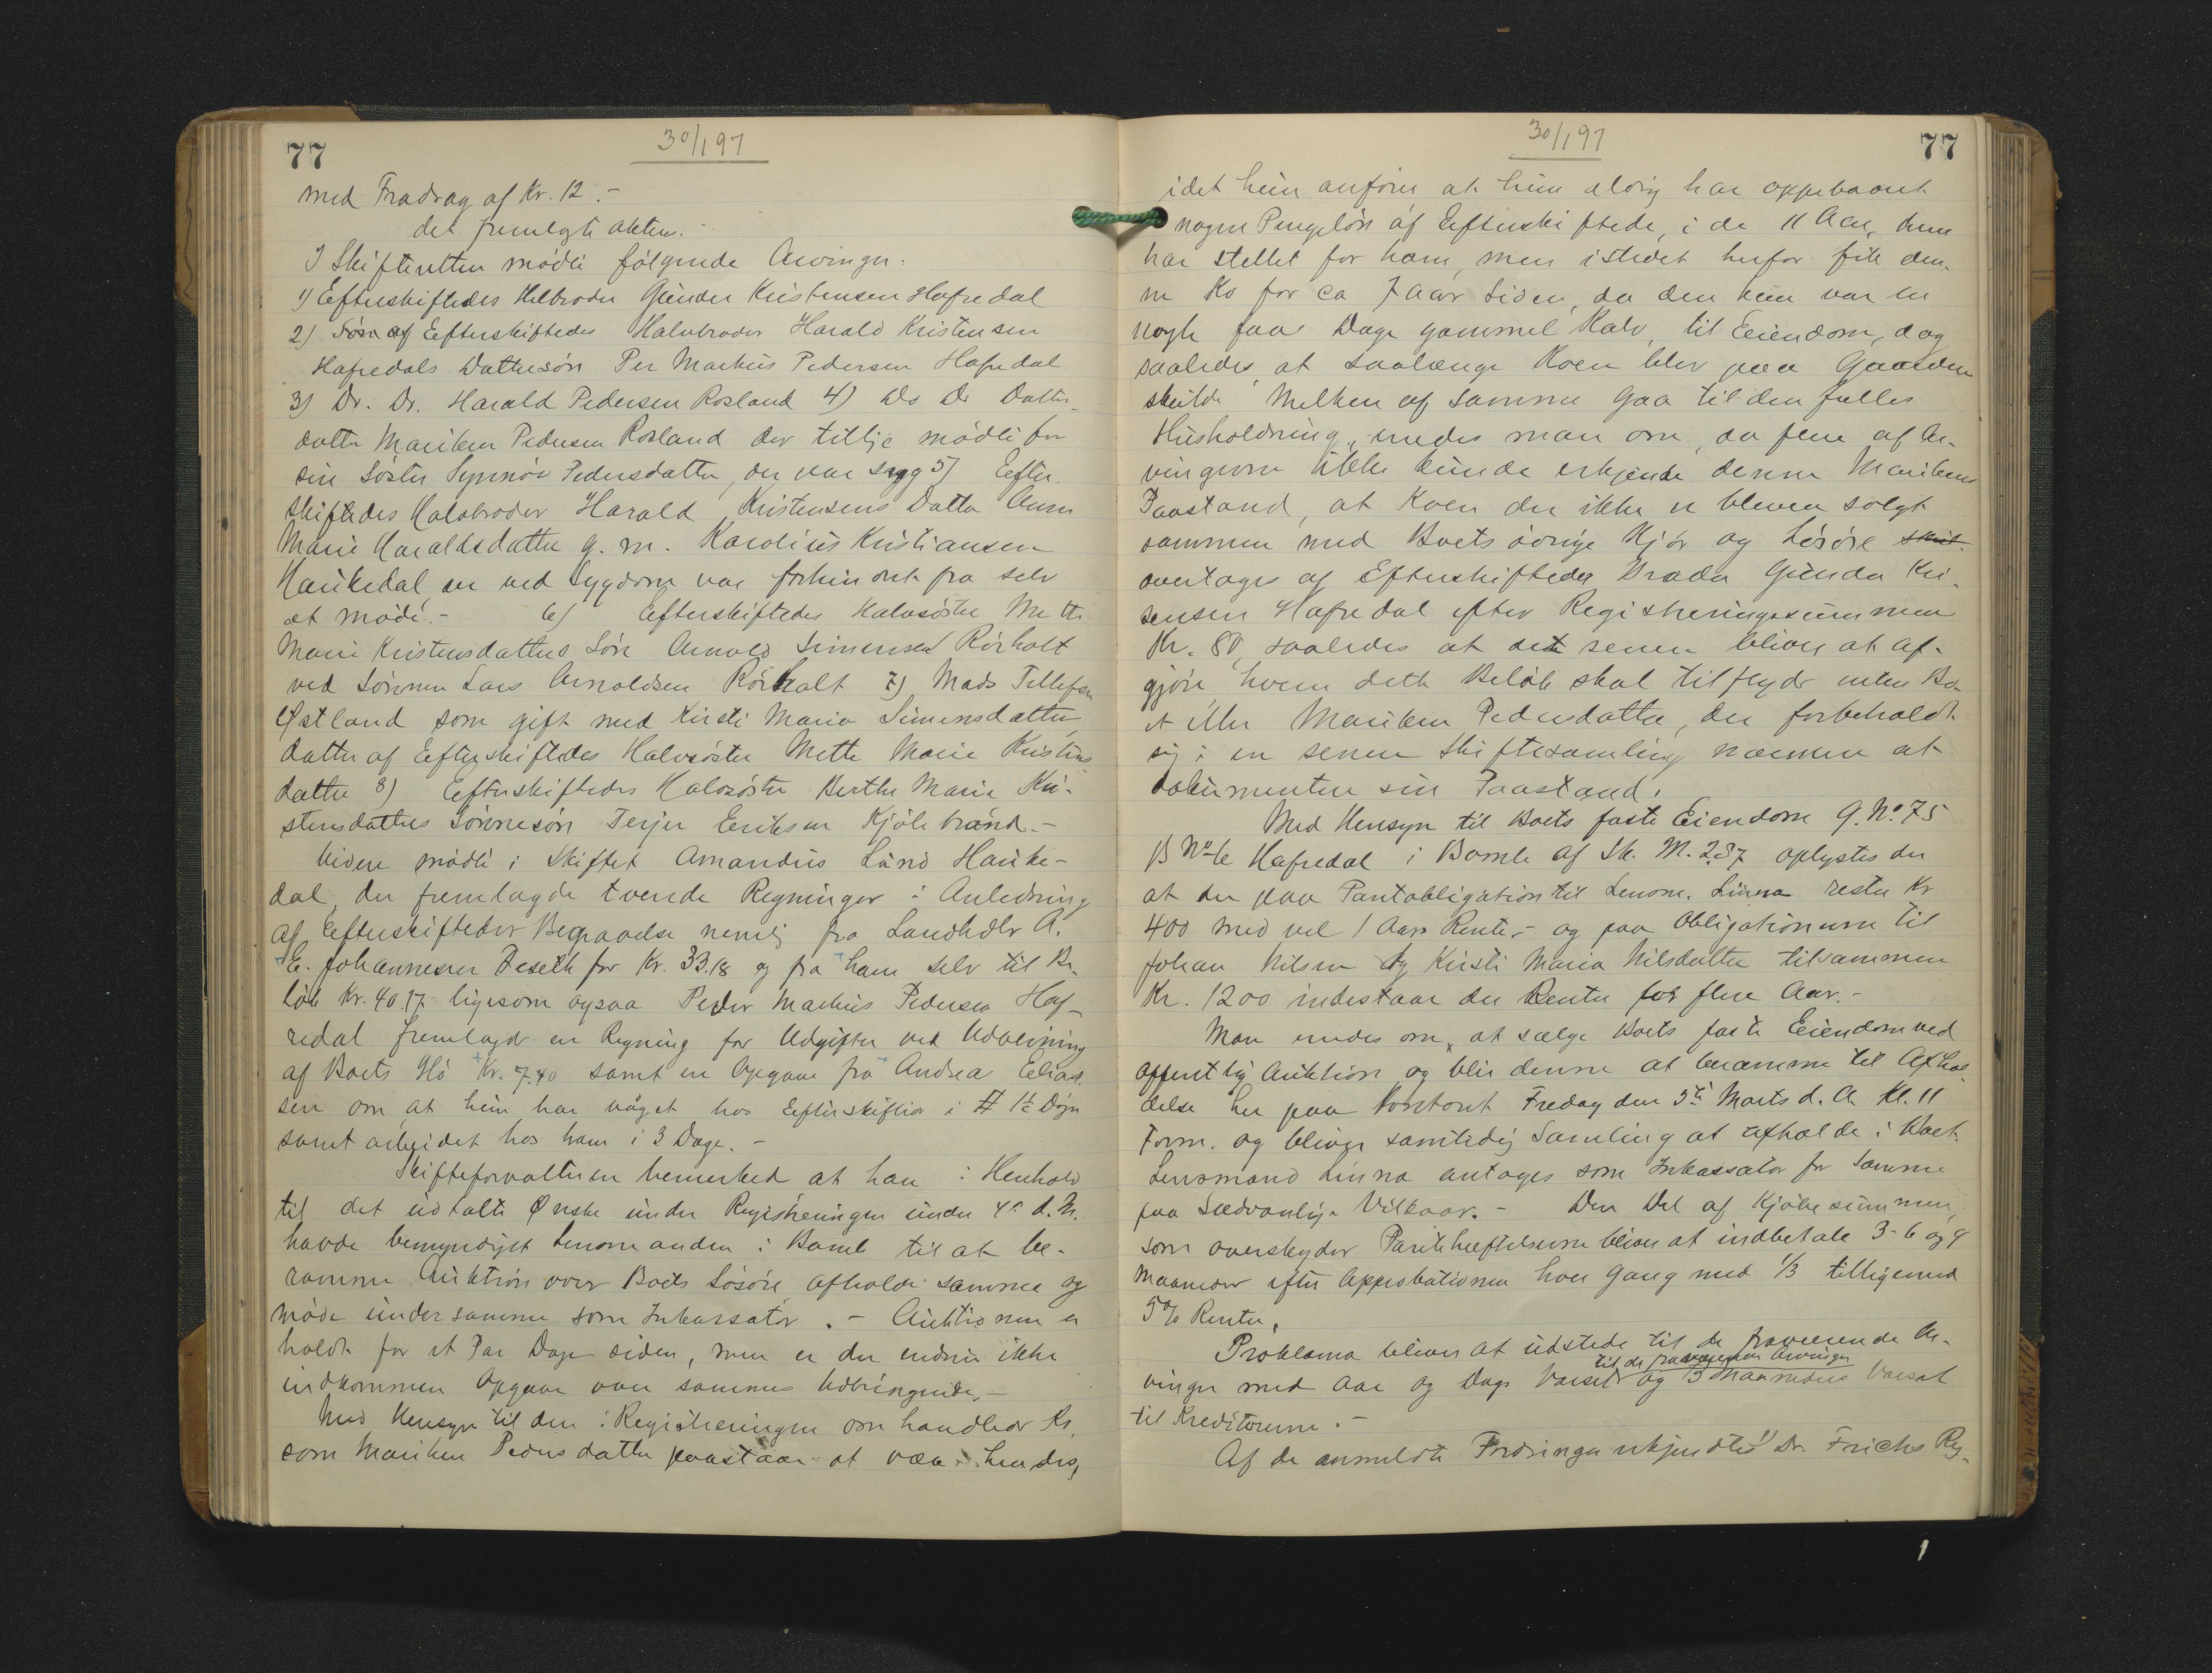 77
30/1 97
med Fradrag af Kr. 12.-
det fremlagte aktens.-
I Skifteretten mødte følgende Arvinger.
1) Efterskiftedes Helbroder Gunder Kristensen Hafredal
2) Søn af Efterskiftedes Halvbroder Harald Kristensen
Hafredals Dattersøn Per Markus Pedersen Hafredal
3) Do. Do. Harald Pedersen Rosland 4) Do Do Datter-
datter Mariken Pedersen Rosland der tillige mødte for
sin Søster Synnøv Pedersdatter, der var syg 5) Efter-
skiftedes Halvbroder Harald Kristensens Datter Anne
Marie Haraldsdatter g. m. Karolius Kristiansen
Haukedal der ved Sygdom var forhindret fra selv
at møde.- 6) Efterskiftedes Halvsøster Mette
Marie Kristensdatters Søn Arnold Simensen Rørholt
ved Sønnen Lars Arnoldsen Rørholt 7) Mads Tellefsen
Østland som gift med Kirsti Maria Simensdatter
datter af Efterskiftedes Halvsøster Mette Marie Kristens
datter 8) Efterskiftedes Halvsøster Berthe Marie Kri-
stensdatters Sønnesøn Terjer Eriksen Kjølebrand.-
Videre mødte i Skiftet Amandus Lund Hauke-
dal, der fremlagde tvende Regninger i Anledning
af Efterskiftedes Begravelse nemlig fra Landhdlr A.
E. Johannesen Teseth for Kr. 33.18 og fra ham selv til Be-
løb Kr. 40.17 ligesom ogsaa Peder Markus Pedersen Haf-
redal fremlagde en Regning for Udgifter ved Udveining
af Boets Hø Kr. 7.40 samt en Opgave fra Andrea Elias-
sen om at hun har våget hos Efterskiftede i # 12 Døgn
samt arbeidet hos ham i 3 Dage.-
Skifteforvalteren bemerked at han i Henhold
til det udtalte Ønske under Registreringen under 4de d. M.
havde bemyndiget Lensmanden i Bamle til at be-
ramme Auktion over Boets Løsøre afholde samme og
møde under samme som Inkassator.- Auktionen er
holdt for et Par Dage siden, men er der endnu ikke
indkommen Opgave over sammes Udbringende.-
Med Hensyn til den i Registreringen omhandlede Ko,
som Mariken Pedersdatter paastaar at være hendes,
30/1 97
77
idet hun anfører at hun aldrig har oppebaaret
nogen Pengeløn af Efterskiftede, i de 11 Aar, hun
har stellet for ham, men istedet herfor fik den-
ne Ko for ca 7 Aar siden, da den kun var en
nogle faa Dage gammel Kalv, til Eiendom, dog
saaledes at saalænge Koen blev paa Gaarden
skulde Melken af samme gaa til den fælles
Husholdning, enedes man om, da flere af Ar-
vingerne ikke kunde erkjende denne Marikens
Paastand, at Koen der ikke er bleven solgt
sammen med Boets øvrige Kjør og Løsøre skul-
overtages af Efterskiftedes Broder Gunder Kri-
stensen Hafredal efter Registreringssummen
Kr. 80, saaledes at det senere bliver at af-
gjøre hvem dette Beløb skal tilflyde enten Bo-
et eller Mariken Pedersdatter, der forbeholdt
sig i en senere Skiftesamling nærmere at
dokumentere sin Paastand.
Med Hensyn til Boets faste Eiendom G. No 75
B No 6 Hafredal i Bamle af Sk. M. 2.87 oplystes der
at der paa Pantobligation til Lensm. Linna rester Kr
400 med vel 1 Aars Rente,- og paa Obligationerne til
Johan Nilsen og Kirsti Maria Nilsdatter tilsammen
Kr. 1200 indestaar der Renter for flere Aar.-
Man enedes om at sælge Boets faste Eiendom ved
offentlig Auktion og blir denne at beramme til Afhol-
delse her paa Kontoret Fredag den 5te Marts d. A. Kl. 11
Form. og bliver samtidig Samling at afholde i Boet.
Lensmand Linna antages som Inkassator for samme
paa Sædvanlige Vilkaar.- Den Del af Kjøbesummen,
som overskyder Pantehæftelserne bliver at indbetale 3-6 og 9
Maaneder efter Approbationen hver Gang med 1/3 tilligemed
5% Renter.
Proklama bliver at udstede til de fraværende Ar-
til de fraværende Arvinger
vinger med Aar og Dags Varsel og 3 Maaneders Varsel
til Kreditorerne.-
Af de anmeldte Fordringer erkjendtes 1) Dr. Frichs Reg-